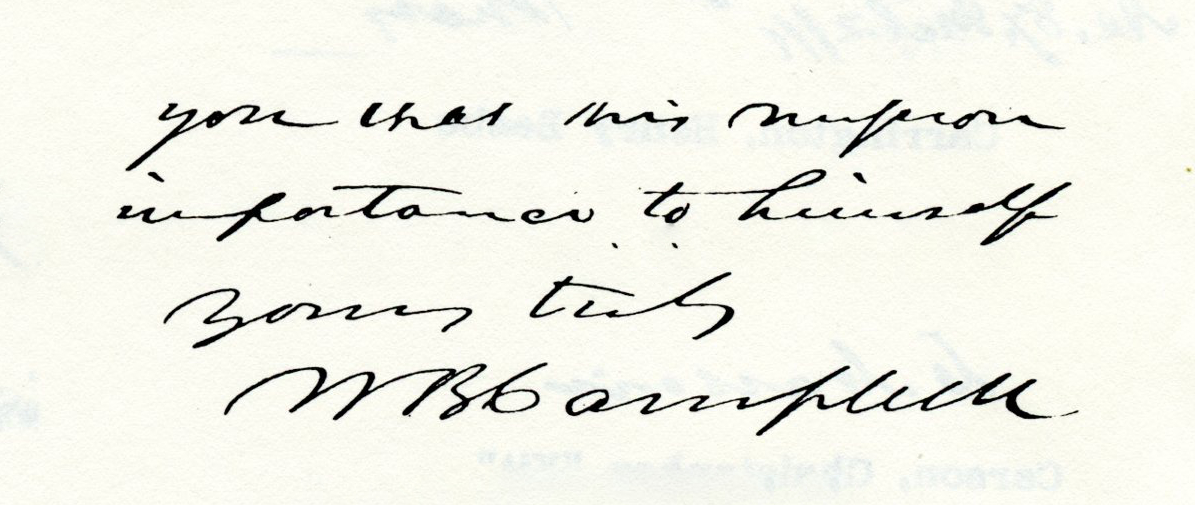 you that this mission
importance to himself
Yours truly
W B Campbell